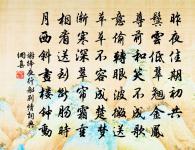 昨夜佳期初共
鬢雲低翠翹金鳳
尊前和笑不成歌
意偷轉眼波微送
草草不容成楚夢
漸寒深翠簾霜重
相看送到斷腸時
月西斜畫樓鐘動
謝絳夜行船別情